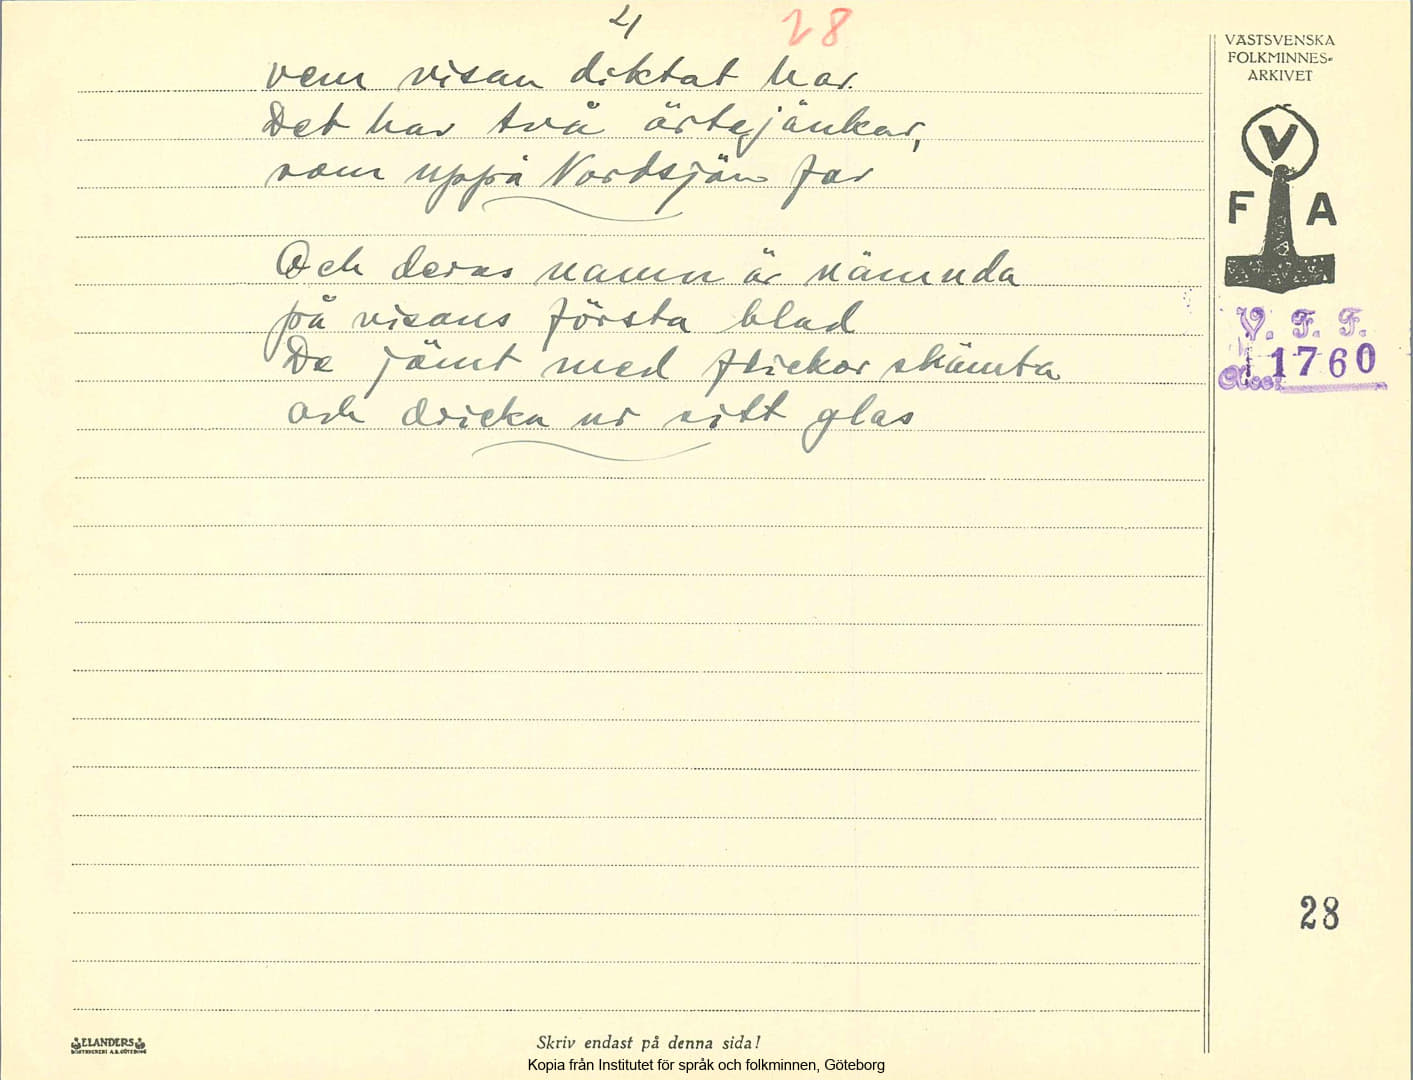 4 28
vem visan diktat har.
Det har två ärtejänkar,
som uppå Nordsjön far
Och deras namn är nämnda
på visans första blad
De jämt med flickor skämta
och dricka ur sitt glas
VÄSTSVENSKA
FOLKMINNES-
ARKIVET
V
F A
V. F. F.
Acc. 1760
28
ELANDERS
BOKTRYCKERI A.B. GÖTEBORG
Skriv endast på denna sida!
Kopia från Institutet för språk och folkminnen, Göteborg